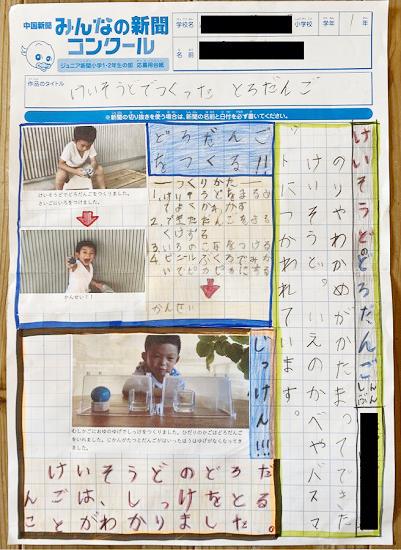 中国新聞
みんなの新聞
コンクール
ジュニア新聞小学1・2年生の部 応募用台紙
学校名
小学校
学年
名前
作品のタイトル
けいそうどでつくった どろだんご
※新聞の切り抜きを使う場合は、新聞の名前と日付を必ず書いてください。
けいそうどのどろだんご
しんぶん
のりやわかめがかたまってできた
けいそうど。いえのかべやバスマ
ットにつかわれています。
どろだんご
をつくる!!
つくりかた
2.できただんごをさら
3.いろのこなをつける
4.ビニールぶくろでみが
かんせい
けいそうどでどろだんごをつくりました。
さいごにいろをつけました。
かんせい!
じっけん!!!
むしかごにおゆのゆげでしっけをつくりました。ひだりのかごはどろだんご
をいれました。じかんがたつとだんごがはいったほうはゆげがなくなってき
ました。
けいそうどのどろだ
んごは、しっけをとる
ことがわかりました。